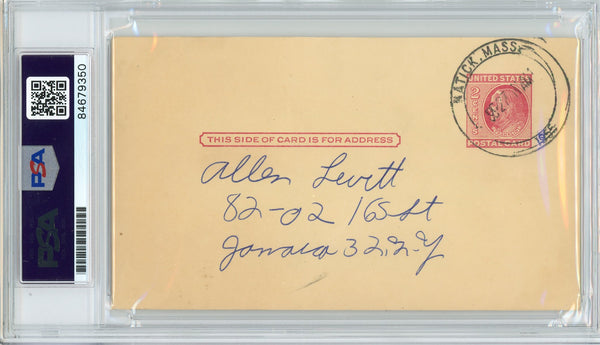 84679350
PSA
PSA
NATICK, MASS.
UNITED STATES
POSTAL CARD
THIS SIDE OF CARD IS FOR ADDRESS
Allen Levitt
82-02 165 St
Jamaica 32, N.Y